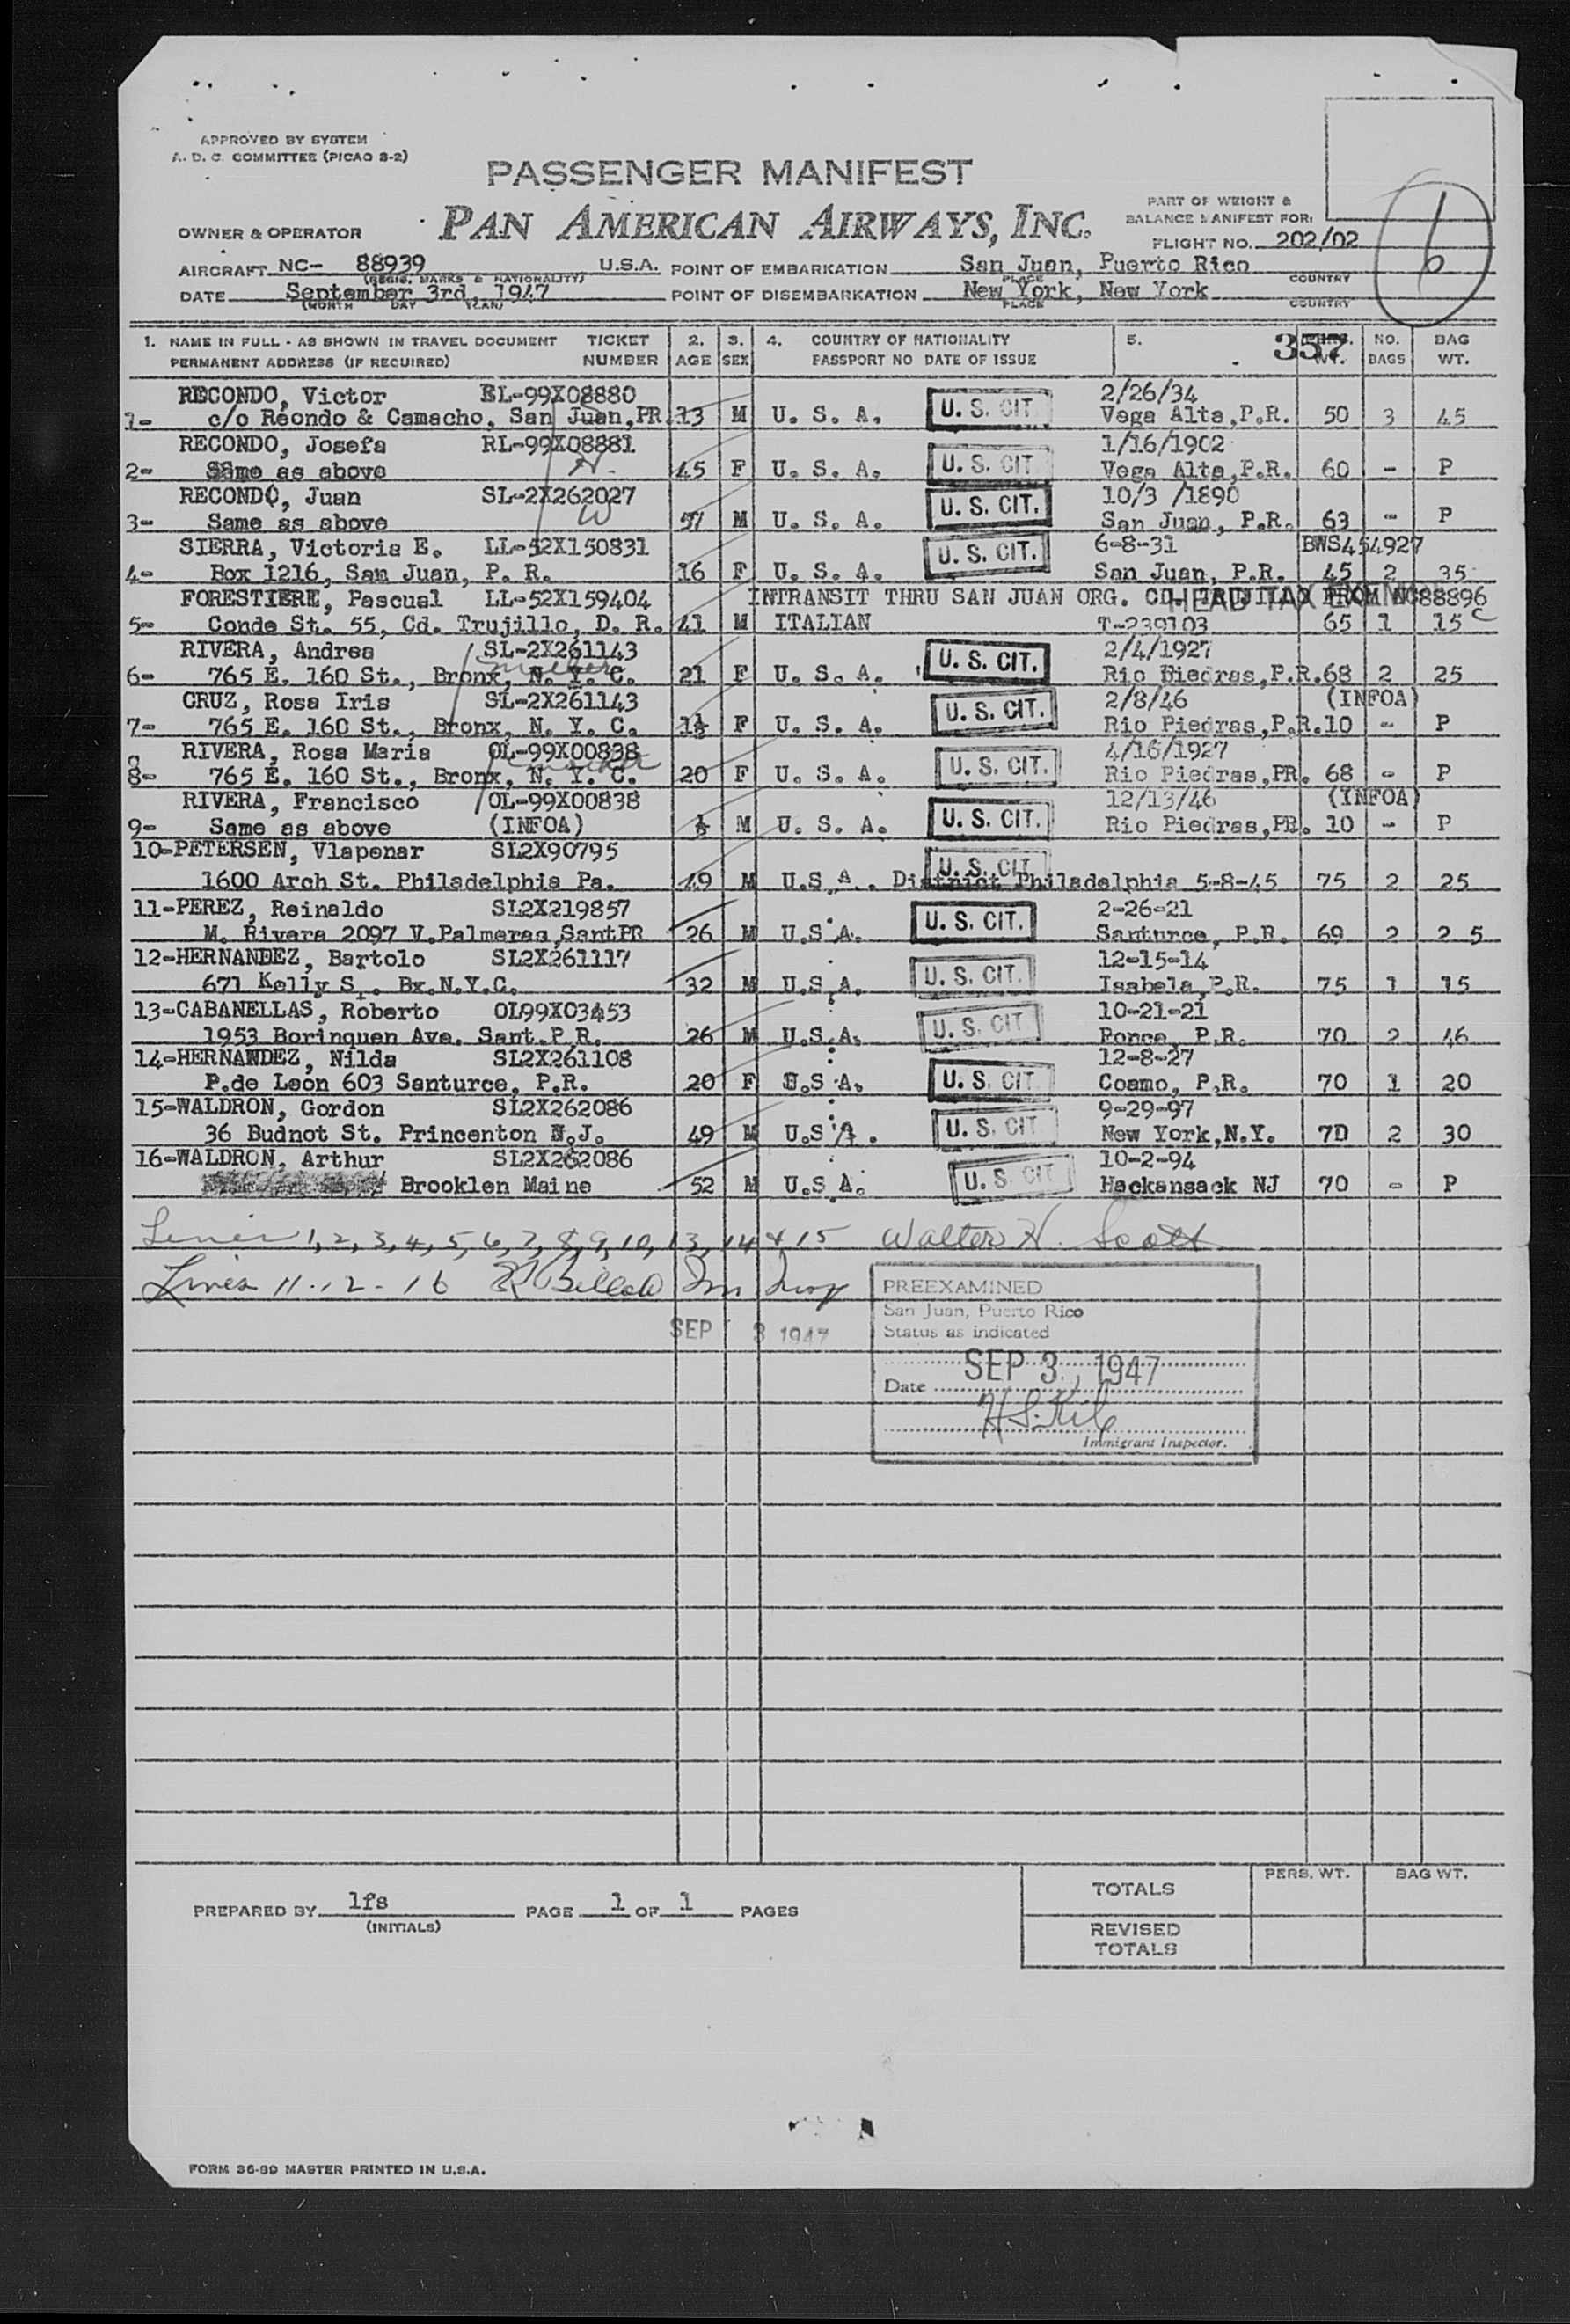 APPROVED BY SYSTEM
A. D. C. COMMITTEE (PICAO 3-2)
PASSENGER MANIFEST
PAN AMERICAN AIRWAYS, INC.
PART OF WEIGHT &
BALANCE MANIFEST FOR:
OWNER & OPERATOR
FLIGHT NO. 202/02
6
AIRCRAFT NC- 88939 U.S.A. POINT OF EMBARKATION San Juan, Puerto Rico
(REGIS. MARKS & NATIONALITY) PLACE COUNTRY
DATE September 3rd 1947 POINT OF DISEMBARKATION New York, New York
(MONTH DAY YEAR) PLACE COUNTRY
1. NAME IN FULL - AS SHOWN IN TRAVEL DOCUMENT TICKET 2. 3. 4. COUNTRY OF NATIONALITY 5. 357 NO. BAG
PERMANENT ADDRESS (IF REQUIRED) NUMBER AGE SEX PASSPORT NO DATE OF ISSUE WT. BAGS WT.
RECONDO, Victor BL-99X08880 U. S. CIT. 2/26/34
1- c/o Reondo & Camacho, San Juan,PR. 13 M U. S. A. Vega Alta,P.R. 50 3 45
RECONDO, Josefa RL-99X08881 U. S. CIT. 1/16/1902
2- Same as above 45 F U. S. A. Vega Alta,P.R. 60 - P
RECONDO, Juan SL-2X262027 U. S. CIT. 10/3 /1890
3- Same as above W 57 M U. S. A. San Juan, P.R. 63 - P
SIERRA, Victoria E. LL-52X150831 U. S. CIT. 6-8-31 BWS454927
4- Box 1216, San Juan, P. R. 16 F U. S. A. San Juan, P.R. 45 2 35
FORESTIERE, Pascual LL-52X159404 INTRANSIT THRU SAN JUAN ORG. CD. TRUJILLO FROM NC88896
HEAD TAX
5- Conde St. 55, Cd. Trujillo, D. R. 41 M ITALIAN T-239103 65 1 15 C
RIVERA, Andrea SL-2X261143 U. S. CIT. 2/4/1927
6- 765 E. 160 St., Bronx, N. Y. C. 21 F U. S. A. Rio Piedras,P.R. 68 2 25
CRUZ, Rosa Iris SL-2X261143 U. S. CIT. 2/8/46 (INFOA)
7- 765 E. 160 St., Bronx, N. Y. C. 1½ F U. S. A. Rio Piedras,P.R. 10 - P
RIVERA, Rosa Maria OL-99X00838 U. S. CIT. 4/16/1927
8- 765 E. 160 St., Bronx, N. Y. C. 20 F U. S. A. Rio Piedras,PR. 68 - P
RIVERA, Francisco OL-99X00838 U. S. CIT. 12/13/46 (INFOA)
9- Same as above (INFOA) ½ M U. S. A. Rio Piedras,PR. 10 - P
10-PETERSEN, Vlapenar SL2X90795 U. S. CIT
1600 Arch St. Philadelphia Pa. 49 M U.S A . District Philadelphia 5-8-45 75 2 25
11-PEREZ, Reinaldo SL2X219857 U. S. CIT. 2-26-21
M. Rivera 2097 V.Palmeras,SantPR 26 M U.S A. Santurce, P.R. 69 2 2 5
12-HERNANDEZ, Bartolo SL2X261117 U. S. CIT. 12-15-14
671 Kelly S . Bx.N.Y.C. 32 M U.S.A. Isabela,P.R. 75 1 15
13-CABANELLAS, Roberto OL99X03453 U. S. CIT. 10-21-21
1953 Borinquen Ave. Sant.P.R. 26 M U.S.A. Ponce, P.R. 70 2 46
14-HERNANDEZ, Nilda SL2X261108 U. S. CIT. 12-8-27
P.de Leon 603 Santurce, P.R. 20 F U.S A. Coamo, P.R. 70 1 20
15-WALDRON, Gordon SL2X262086 U. S. CIT 9-29-97
36 Budnot St. Princenton N.J. 49 M U.S A. New York,N.Y. 70 2 30
16-WALDRON, Arthur SL2X262086 U. S. CIT 10-2-94
Brooklen Maine 52 M U.S A. Hackansack NJ 70 - P
1, 2, 3, 4, 5, 6, 7, 8, 9, 10, 13, 14 & 15 Walter H. Scott
Lines 11-12-16
PREEXAMINED
San Juan, Puerto Rico
Status as indicated
SEP 3 1947
Date SEP 3, 1947
Immigrant Inspector.
PERS. WT. BAG WT.
TOTALS
PREPARED BY lfs PAGE 1 OF 1 PAGES
(INITIALS)
REVISED
TOTALS
FORM 36-89 MASTER PRINTED IN U.S.A.